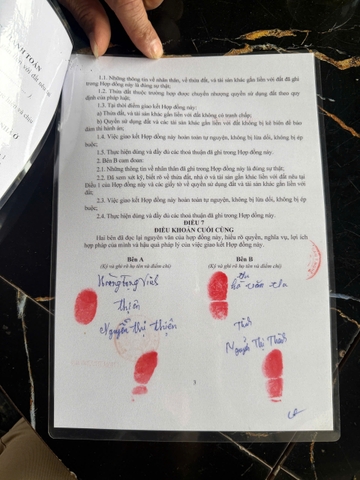 1.1. Những thông tin về nhân thân, về thửa đất, và tài sản khác gắn liền với đất đã ghi
trong Hợp đồng này là đúng sự thật;
1.2. Thửa đất thuộc trường hợp được chuyển nhượng quyền sử dụng đất theo quy
định của pháp luật;
1.3. Tại thời điểm giao kết Hợp đồng này:
a) Thửa đất, và tài sản khác gắn liền với đất không có tranh chấp;
b) Quyền sử dụng đất và các tài sản khác gắn liền với đất không bị kê biên để bảo
đảm thi hành án;
1.4. Việc giao kết Hợp đồng này hoàn toàn tự nguyện, không bị lừa dối, không bị ép
buộc;
1.5. Thực hiện đúng và đầy đủ các thoả thuận đã ghi trong Hợp đồng này.
2. Bên B cam đoan:
2.1. Những thông tin về nhân thân đã ghi trong Hợp đồng này là đúng sự thật;
2.2. Đã xem xét kỹ, biết rõ về thửa đất, nhà ở và tài sản gắn liền với đất nêu tại
Điều 1 của Hợp đồng này và các giấy tờ về quyền sử dụng đất và tài sản khác gắn liền với
đất;
2.3. Việc giao kết Hợp đồng này hoàn toàn tự nguyện, không bị lừa dối, không bị ép
buộc;
2.4. Thực hiện đúng và đầy đủ các thoả thuận đã ghi trong Hợp đồng này.
ĐIỀU 7
ĐIỀU KHOẢN CUỐI CÙNG
Hai bên đã đọc lại nguyên văn của hợp đồng này, hiểu rõ quyền, nghĩa vụ, lợi ích
hợp pháp của mình và hậu quả pháp lý của việc giao kết Hợp đồng này.
Bên A
(Ký và ghi rõ họ tên và điểm chỉ)
Thiện
Nguyễn Thị Thiện
Bên B
(Ký và ghi rõ họ tên và điểm chỉ)
Nguyễn Thị Thành
3